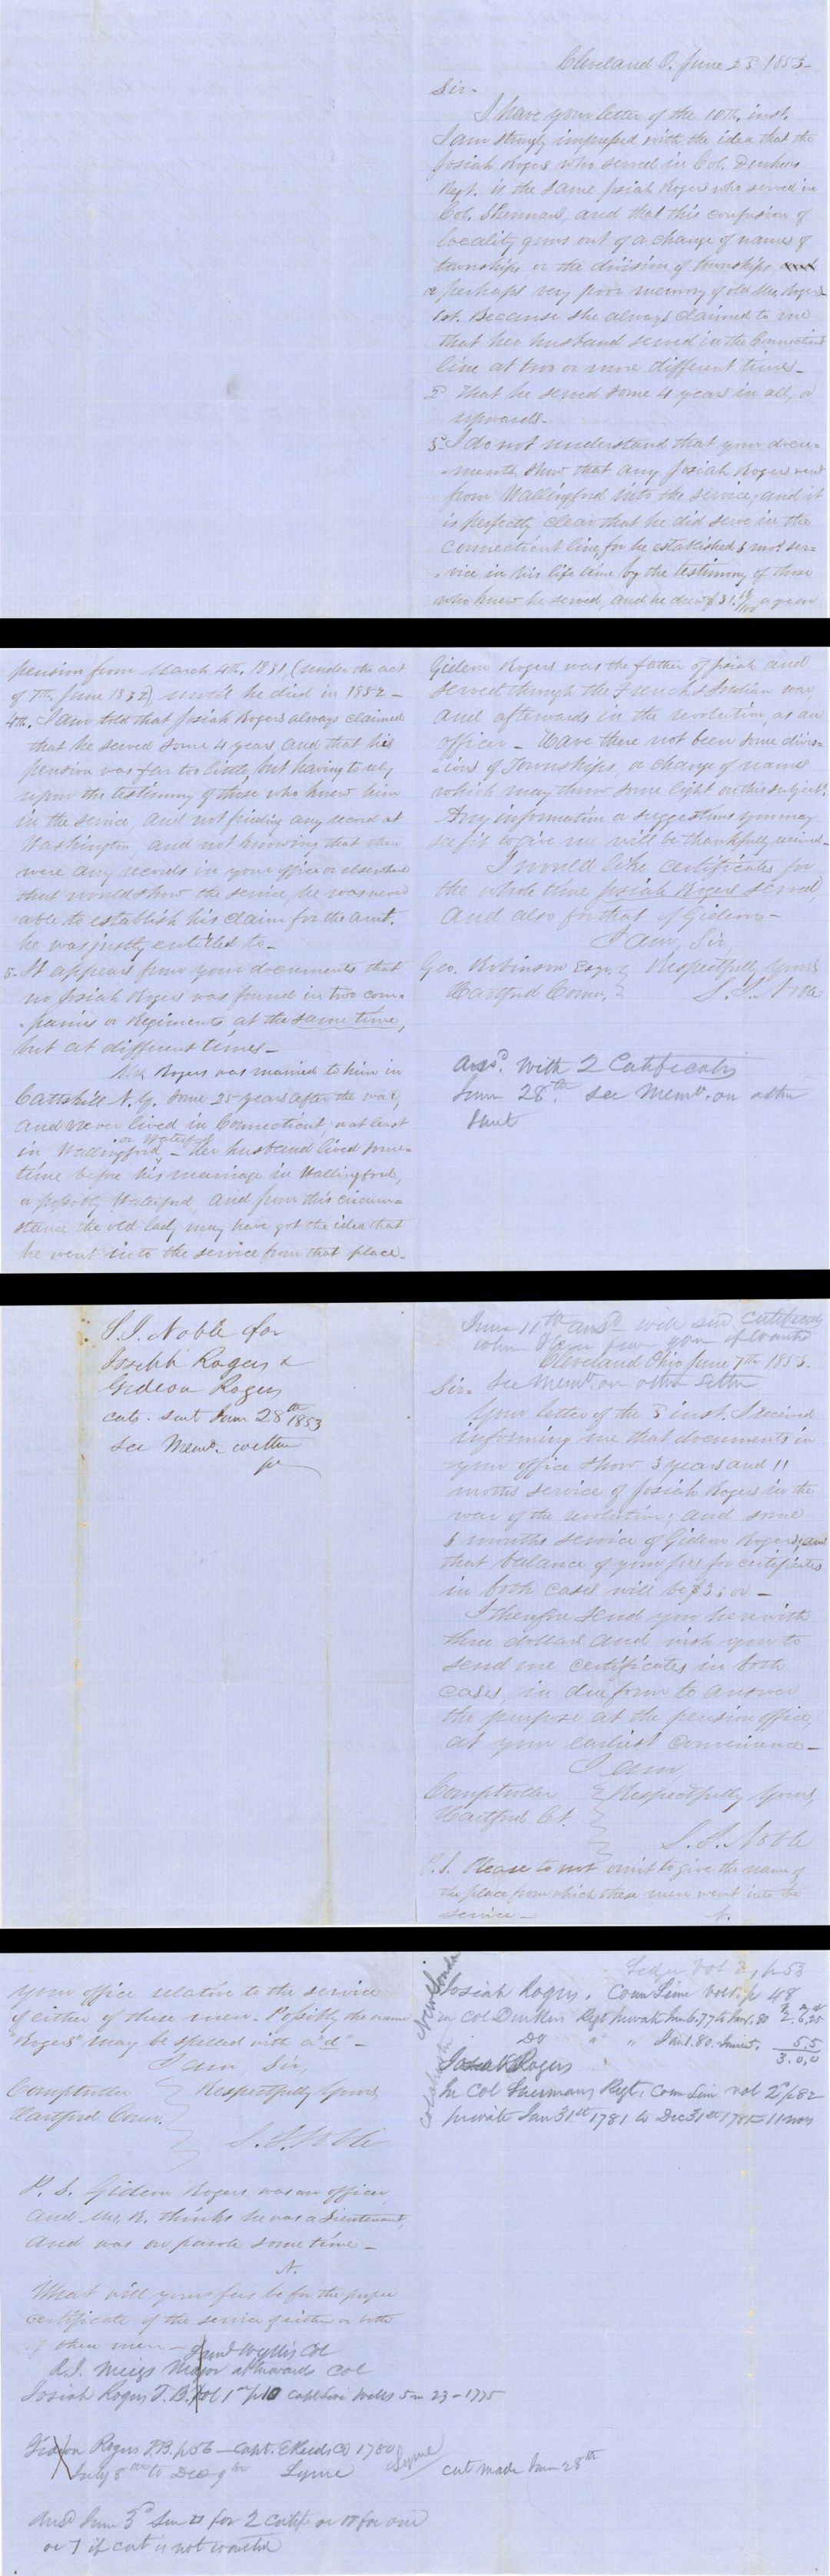 Cleveland O. June 23 1853-
Sir-
I have your letter of the 10th. inst.
I am strongly impressed with the idea that the
Josiah Rogers who served in Col. Durkees
Regt. is the same Josiah Rogers who served in
Col. Shermans, and that this confusion of
locality grows out of a change of names of
townships, or the division of townships,
or perhaps very poor memory of old Mrs Rogers
1st. Because she always claimed to me
that her husband served in the Connecticut
line at two or more different times-
2 That he served some 4 years in all, or
upwards-
3d I do not understand that your docu=
=ments show that any Josiah Rogers went
from Wallingford into the service, and it
is perfectly clear that he did serve in the
Connecticut line, for he established 6 mos. ser=
=vice in his life time by the testimony of those
who knew he served, and he drew $31. a year
pension from March 4th. 1831, (under the act
of 7th. June 1832) until he died in 1852-
4th. I am told that Josiah Rogers always claimed
that he served some 4 years and that his
pension was far too little, but having to rely
upon the testimony of those who knew him
in the service, and not finding any record at
Washington, and not knowing that there
were any records in your office or elsewhere
that would show the service, he was never
able to establish his claim for the amt.
he was justly entitled to-
5- It appears from your documents that
no Josiah Rogers was found in two com=
=panies or Regiments at the same time,
but at different times-
Mrs Rogers was married to him in
Cattskill N.Y. some 25 years after the war,
and never lived in Connecticut or at least
in Wallingford or Waterford - Her husband lived some=
time before his marriage in Wallingford,
or possibly Waterford, and from this circum=
stance the old lady may have got the idea that
he went into the service from that place-
Gideon Rogers was the father of Josiah and
served through the French & Indian war
and afterwards in the revolution, as an
officer- Have there not been some divis=
=ions of Townships, or change of names
which may throw some light on this subject?
Any information or suggestions you may
see fit to give me will be thankfully received-
I would like certificates for
the whole time Josiah Rogers served
and also for that of Gideon-
I am, Sir,
Geo. Robinson Esqr. } Respectfully Yours
Hartford Conn. } S. I. Noble
ansd. with 2 Certificates
June 28th. see Memo. on other
sheet
S. I. Noble for
Josiah Rogers &
Gideon Rogers
certs. sent June 28th 1853
see Memo. within
June 11th ansd with
Cleveland Ohio June 7th 1853.
Sir- see Memo on other letter
Your letter of the 3 inst. I received
informing me that documents in
your office show 3 years and 11
months service of Josiah Rogers in the
war of the revolution; and some
6 months service of Gideon Rogers; and
that balance of your fees for certificates
in both cases will be $3:00-
I therefore send you herewith
three dollars and wish you to
send me certificates in both
cases, in due form to answer
the purpose at the pension office,
at your earliest convenience-
I am
Comptroller } Respectfully Yours,
Hartford Ct. } S. I. Noble
P.S. Please to not omit to give the name of
the place from which these men went into the
service- N.
your office relative to the service
of either of these men- Possibly the name
"Rogers" may be spelled with a "d"-
I am Sir,
Comptroller } Respectfully Yours
Hartford Conn. } S. I. Noble
P. S. Gideon Rogers was an officer
and Mrs. R. thinks he was a Lieutenant,
and was on parole some time-
N.
What will your fees be for the proper
certificate of the service of either or both
of these men-
Wyllis Col
R.J. Meigs Major afterwards Col
Josiah Rogers T.B. Vol 1 p 10 Capt Levi Wells 5 m 23 - 1775
Gideon Rogers T.B. p 56 - Capt. Co 1780 Lyme
July 8th to Dec 9th Lyme
Ansd June 3d for 2 certif or for one
or 1 if cert is not wanted
Vol 2, p 53
Josiah Rogers. Conn Line vol 1. p 48
in Col Durkees Regt private Jan 6. 77 to Jan 1. 80
Do " " Jan 1. 80. 5.5
3.0.0
Colchester
New London
Josiah Rogers
In Col Shermans Regt, Conn Line vol 2d p 82
private Jan 31st 1781 to Dec 31st 1781 = 11 mos
cert made June 28th